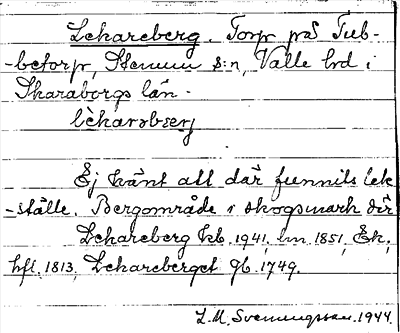 Lekareberg. Torp på Tub-
-betorp, Stenum s:n, Valle hd i
Skaraborgs län.
lèkarəbærj
Ej känt att där funnits lek
-ställe. Bergområde i skogsmark där
Lekareberg kb. 1941, hm. 1851, Ek,
hfl. 1813, Lekareberget gb. 1749.
L.M. Svenungsson. 1944.